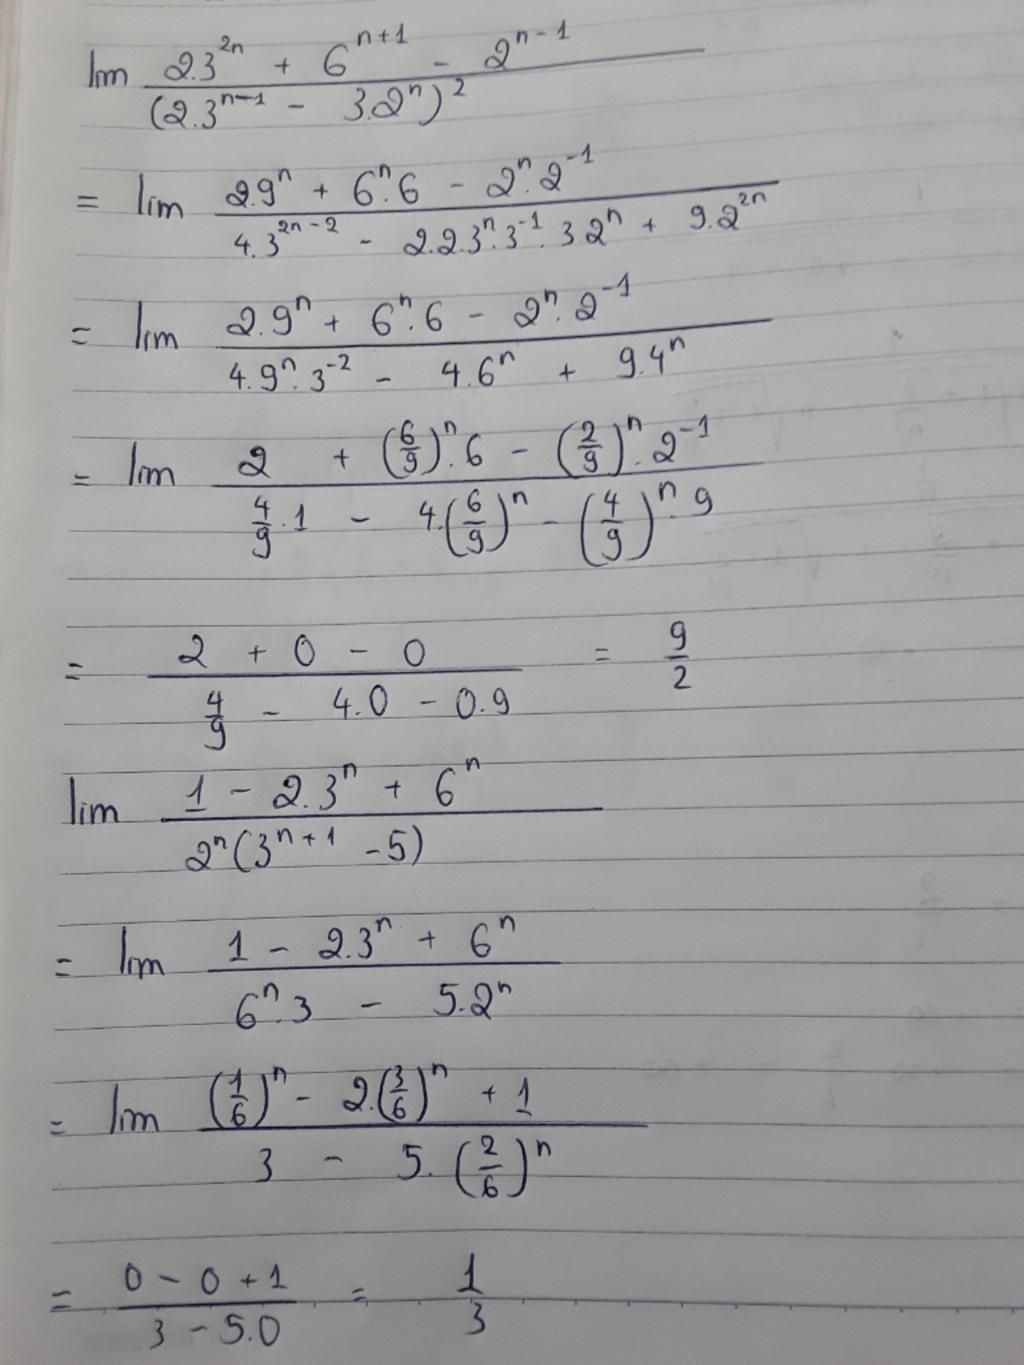 lim (2.3^{2n} + 6^{n+1} - 2^{n-1}) / (2.3^{n-1} - 3.2^n)^2
= lim (2.9^n + 6^n.6 - 2^n.2^{-1}) / (4.3^{2n-2} - 2.2.3^n.3^{-1}.3.2^n + 9.2^{2n})
= lim (2.9^n + 6^n.6 - 2^n.2^{-1}) / (4.9^n.3^{-2} - 4.6^n + 9.4^n)
= lim (2 + (6/9)^n.6 - (2/9)^n.2^{-1}) / (4/9.1 - 4.(6/9)^n - (4/9)^n.9)
= (2 + 0 - 0) / (4/9 - 4.0 - 0.9) = 9/2
lim (1 - 2.3^n + 6^n) / (2^n(3^{n+1} - 5))
= lim (1 - 2.3^n + 6^n) / (6^n.3 - 5.2^n)
= lim ((1/6)^n - 2.(3/6)^n + 1) / (3 - 5.(2/6)^n)
= (0 - 0 + 1) / (3 - 5.0) = 1/3